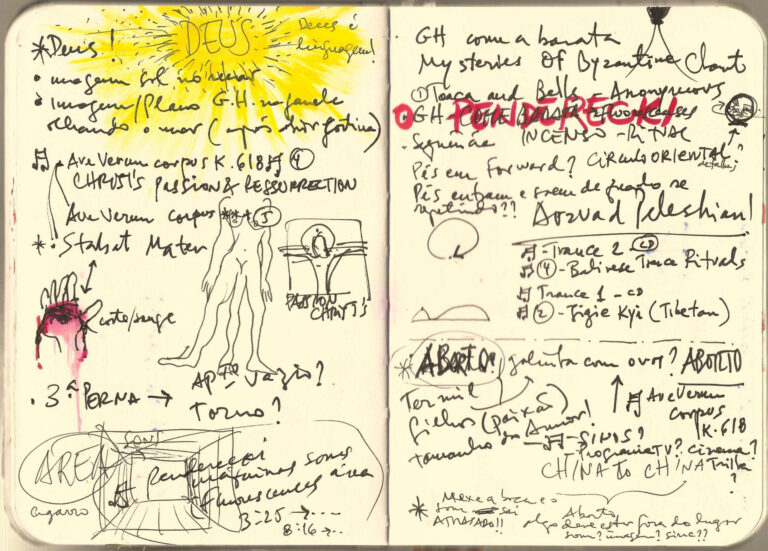 *Deus!
DEUS
Deus é
linguagem!
• imagem sol no
• Imagem/Plano G.H. na janela
olhando o mar (após
Ave Verum corpus K. 618 4
CHRIST'S PASSION & RESSURRECTION
Ave Verum corpus *** 5
* Stabat Mater
PASSION
CHRIST'S
corte/sangue
• 3ª PERNA → APTO vazio?
Torno?
SONS
ÁREA
cigarro
Penderecki
máquinas sons
fluorescentes área
3:25 →...
8:16 →...
GH come a barata
Mysteries Of Byzantine Chant
① Toaca and Bells - Anonymous
• GH COME BARATA
PENDERECKI
• Sequencia INCENSO - RITUAL
Pés em Forward? CÍRCULO ORIENTAL?
detalhes
Pés entram e saem de quadro se
repetindo??
Arzvad Peleshian!
- Trance 2 - CD
④ - Balinese Trance Rituals
Trance 1 - CD
② - Jigie Kyi (Tibetan)
* ABORTO! galinha com ovos? ABORTO
Ter mil
filhos (paixão)
tamanho do Amor!
Ave Verum
corpus
K. 618
- SINOS?
- Programa TV? cinema?
CHINA TO CHINA Trilha
?
* Mexe a boca e
som sai
ATRASADO!!
Aborto
algo deve estar fora do lugar
som? imagem? sinc??